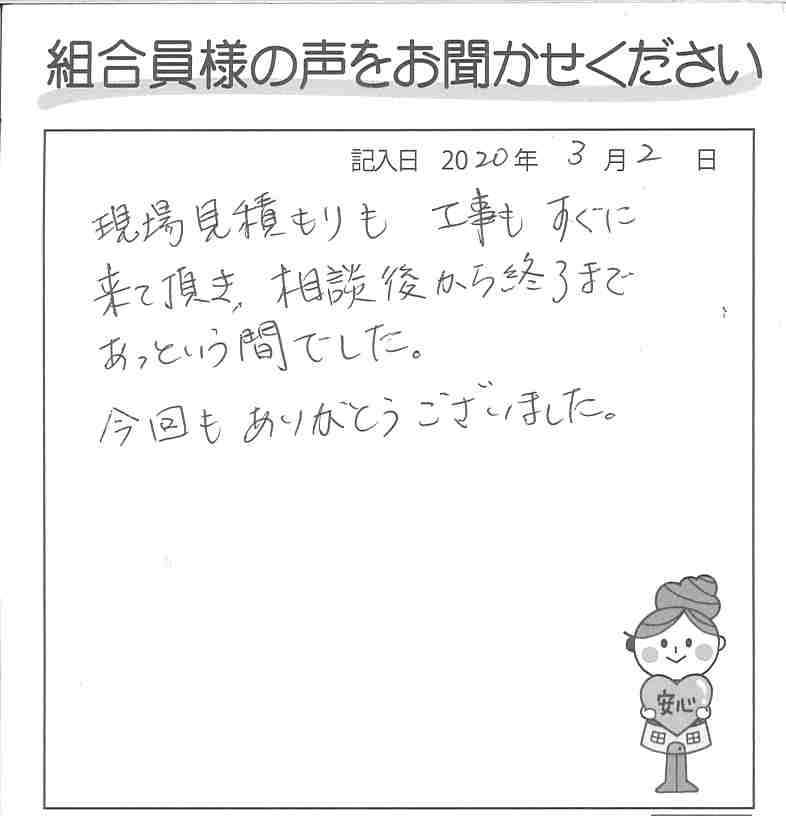 組合員様の声をお聞かせください
記入日 2020年 3月2日
現場見積もりも 工事も すぐに
来て頂き、相談後から終了まで
あっという間でした。
今回も ありがとうございました。
安心